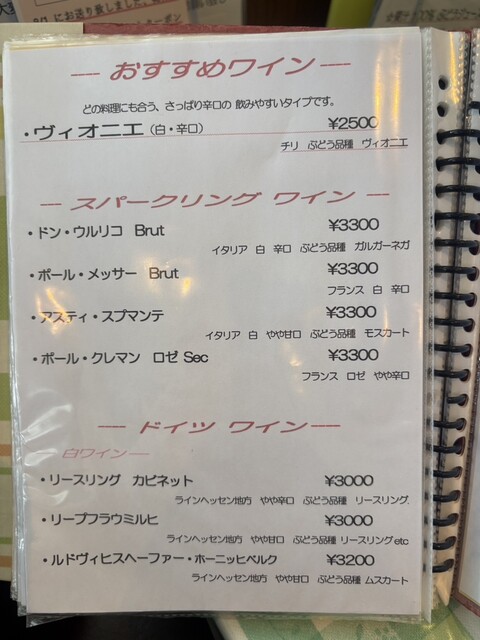 ― おすすめワイン ―
どの料理にも合う、さっぱり辛口の 飲みやすいタイプです。
・ヴィオニエ（白・辛口） ¥2500
チリ ぶどう品種 ヴィオニエ
― スパークリング ワイン ―
・ドン・ウルリコ Brut ¥3300
イタリア 白 辛口 ぶどう品種 ガルガーネガ
・ポール・メッサー Brut ¥3300
フランス 白 辛口
・アスティ・スプマンテ ¥3300
イタリア 白 やや甘口 ぶどう品種 モスカート
・ポール・クレマン ロゼ Sec ¥3300
フランス ロゼ やや辛口
― ドイツ ワイン ―
白ワイン―
・リースリング カビネット ¥3000
ラインヘッセン地方 やや辛口 ぶどう品種 リースリング.
・リープフラウミルヒ ¥3000
ラインヘッセン地方 やや甘口 ぶどう品種 リースリングetc
・ルドヴィヒスヘーファー・ホーニッヒベルク ¥3200
ラインヘッセン地方 やや甘口 ぶどう品種 ムスカート